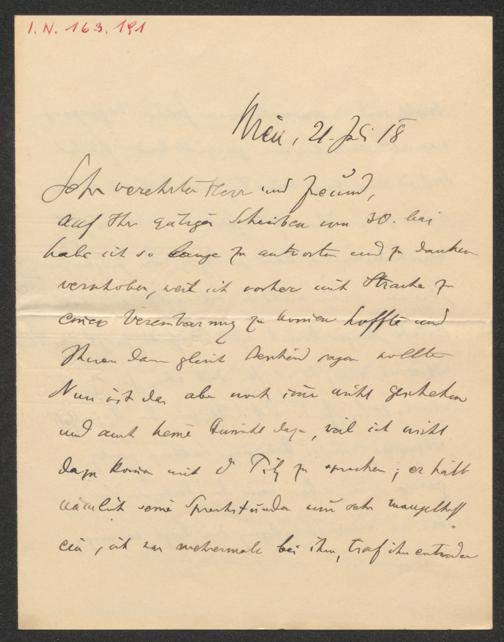 I. N. 163.191
Wien, 21. Juli 18
Sehr verehrter Herr und Freund,
auf Ihr gütiges Schreiben vom 30. Mai
habe ich so lange zu antworten und zu danken
verschoben, weil ich vorher mit Strache zu
einer Vereinbarung zu kommen hoffte und
Ihnen dann gleich Bescheid sagen wollte
Nun ist das aber noch immer nicht geschehen
und auch keine Aussicht dazu, weil ich nicht
dazu komme mit D zu sprechen; er hält
nämlich seine Sprechstunden nur sehr mangelhaft
ein, ich war mehrmals bei ihm, traf ihn entweder